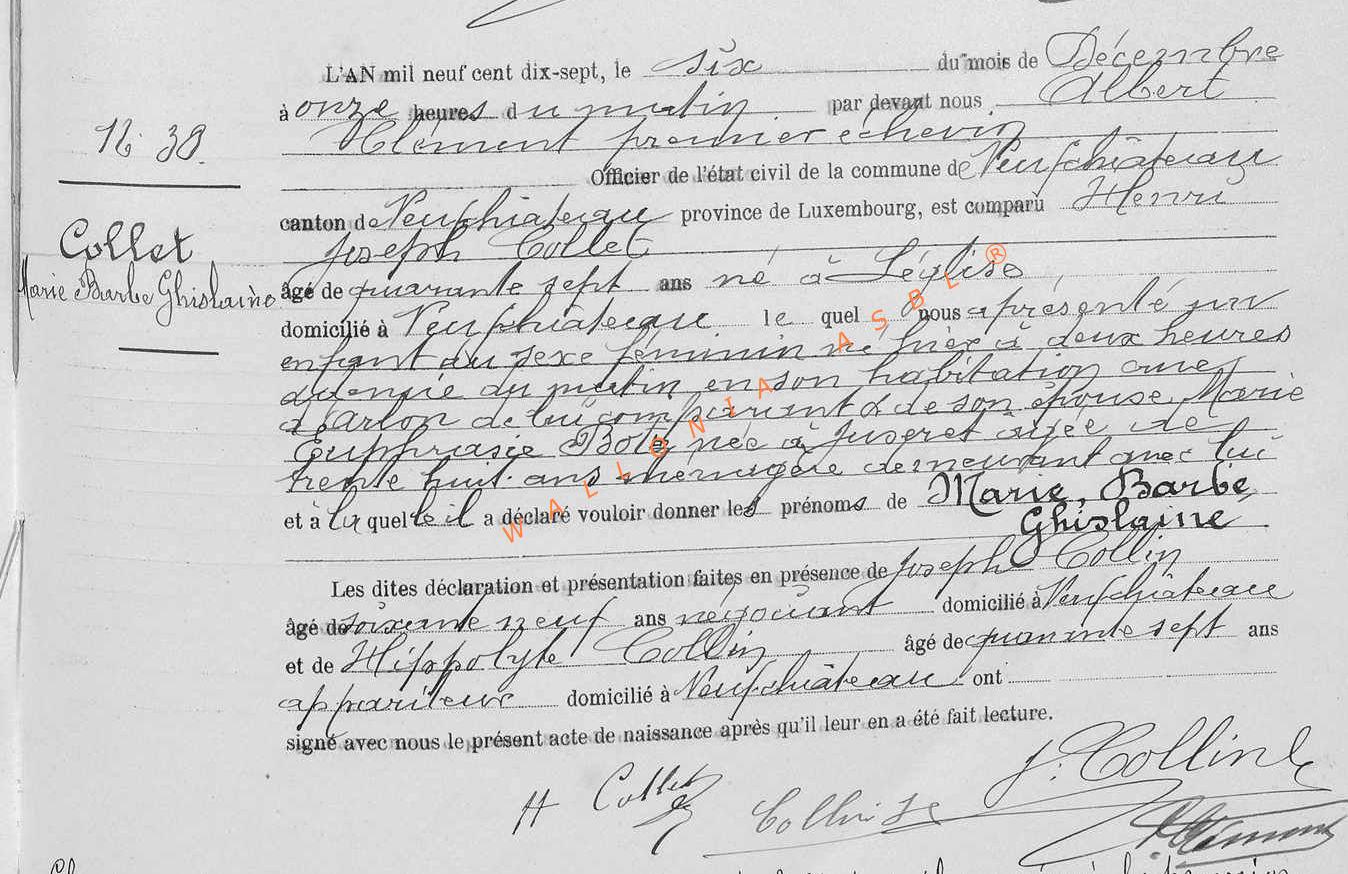 L'AN mil neuf cent dix-sept, le six du mois de Décembre
à onze heures du matin par devant nous Albert
Clément premier échevin
Officier de l'état civil de la commune de Neufchâteau
canton de Neufchâteau province de Luxembourg, est comparu Henri
Joseph Collet
âgé de quarante sept ans né à Léglise
domicilié à Neufchâteau le quel nous a présenté un
enfant du sexe féminin né hier à deux heures
du matin en son habitation
d'Arlon de lui comparant & de son épouse Marie
Euphrasie née à Juseret âgée de
trente huit ans ménagère demeurant avec lui
et à laquelle il a déclaré vouloir donner les prénoms de Marie, Barbe,
Ghislaine
Les dites déclaration et présentation faites en présence de Joseph Collin
âgé de soixante neuf ans négociant domicilié à Neufchâteau
et de Hippolyte Collin âgé de quarante sept ans
appariteur domicilié à Neufchâteau ont
signé avec nous le présent acte de naissance après qu'il leur en a été fait lecture.
N. 38.
Collet
Marie Barbe Ghislaine
WALLONIA ASBL ®
H Collet
J. Collin
Collin